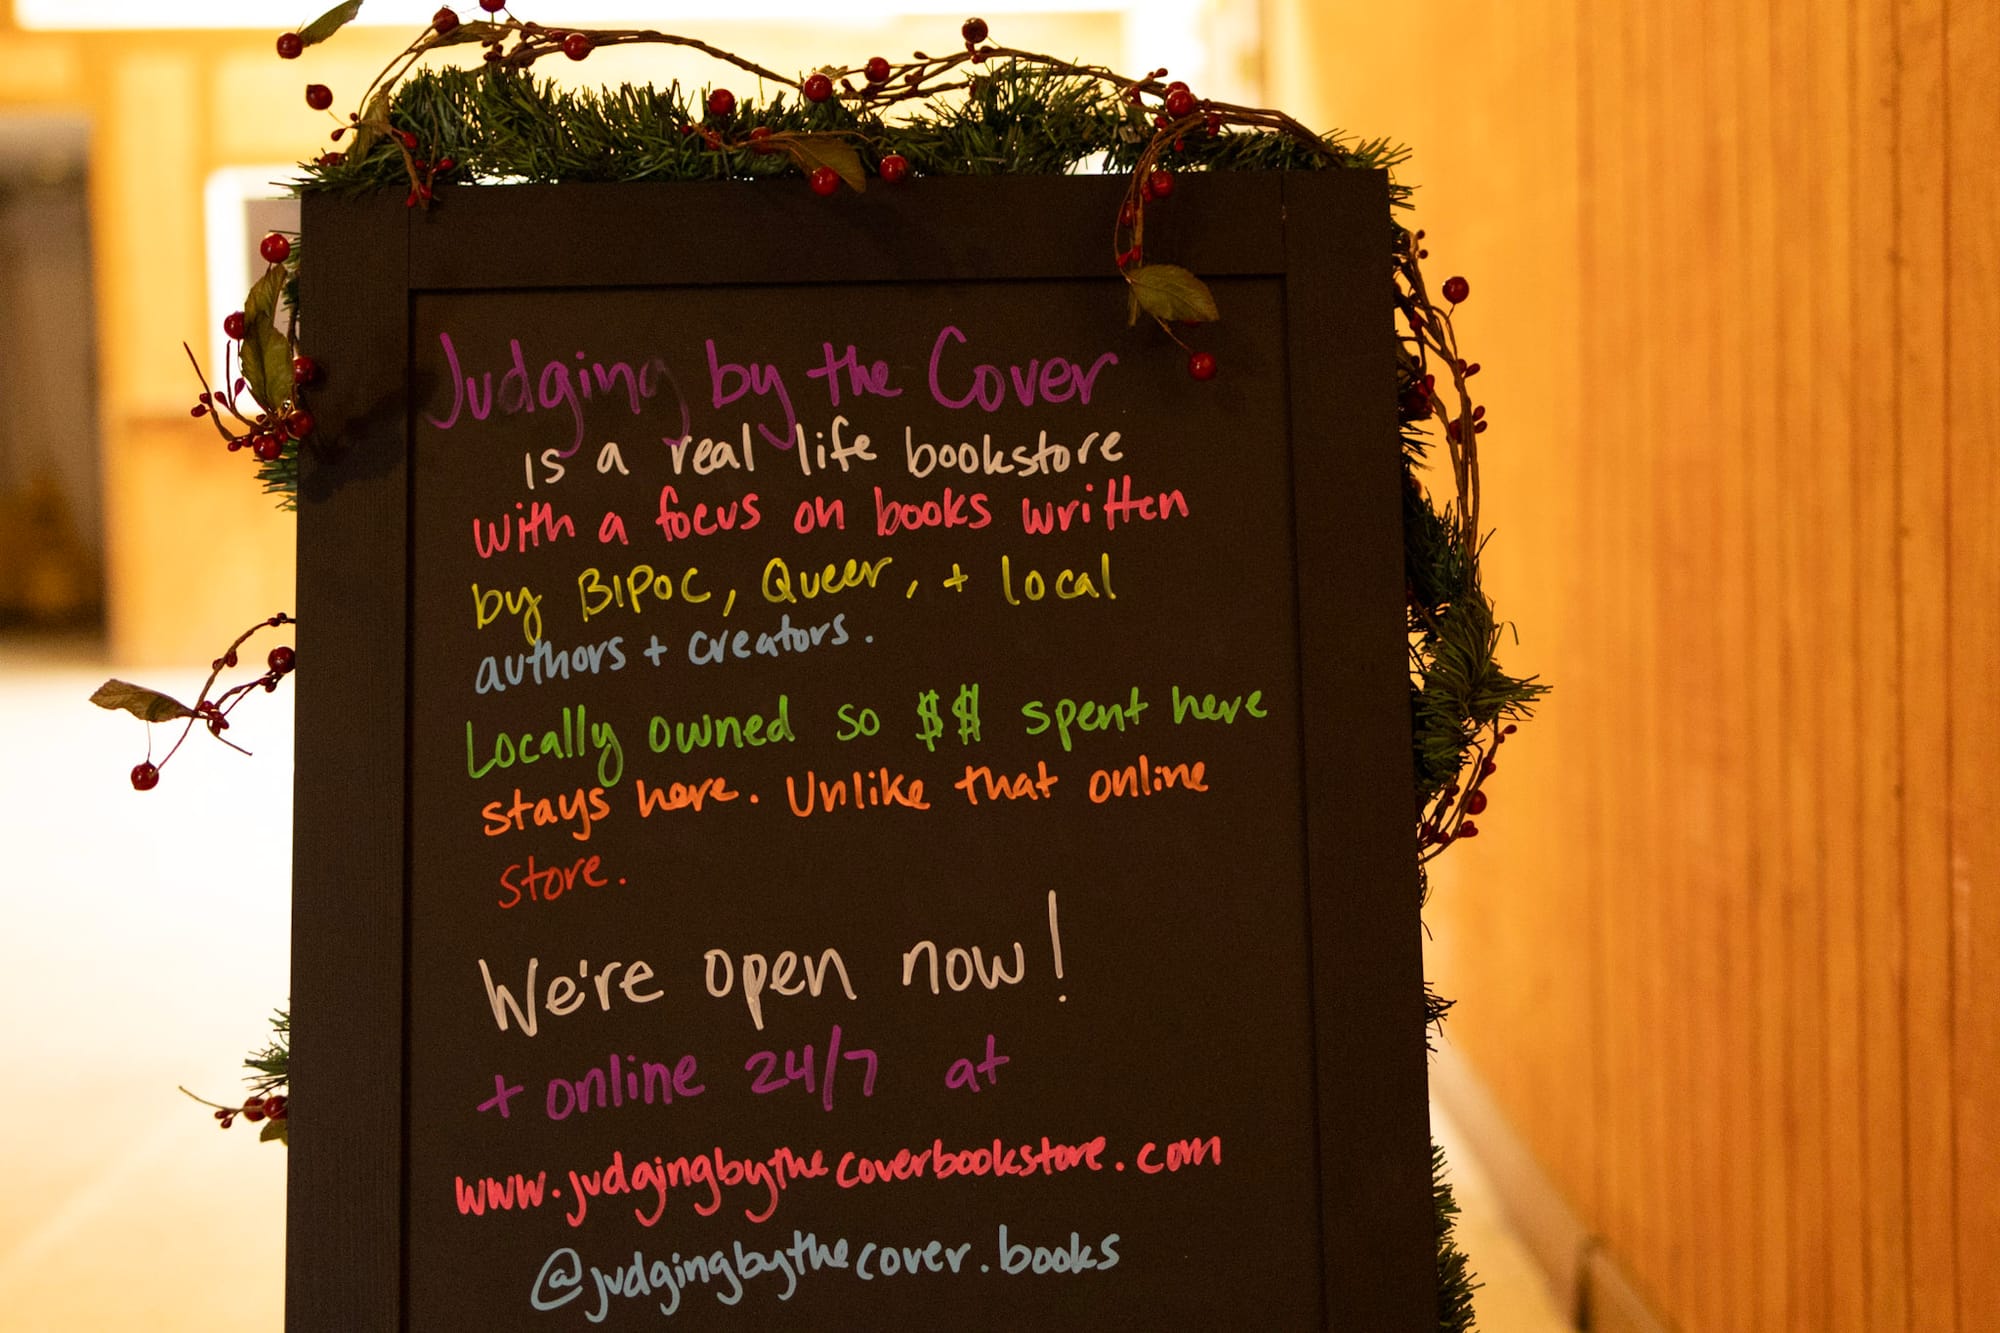 Judging by the Cover
is a real life bookstore
with a focus on books written
by BIPOC, Queer, + local
authors + creators.
Locally owned so $$ spent here
stays here. Unlike that online
store.
We're open now!
+ online 24/7 at
www.judgingbythecoverbookstore.com
@judgingbythecover.books